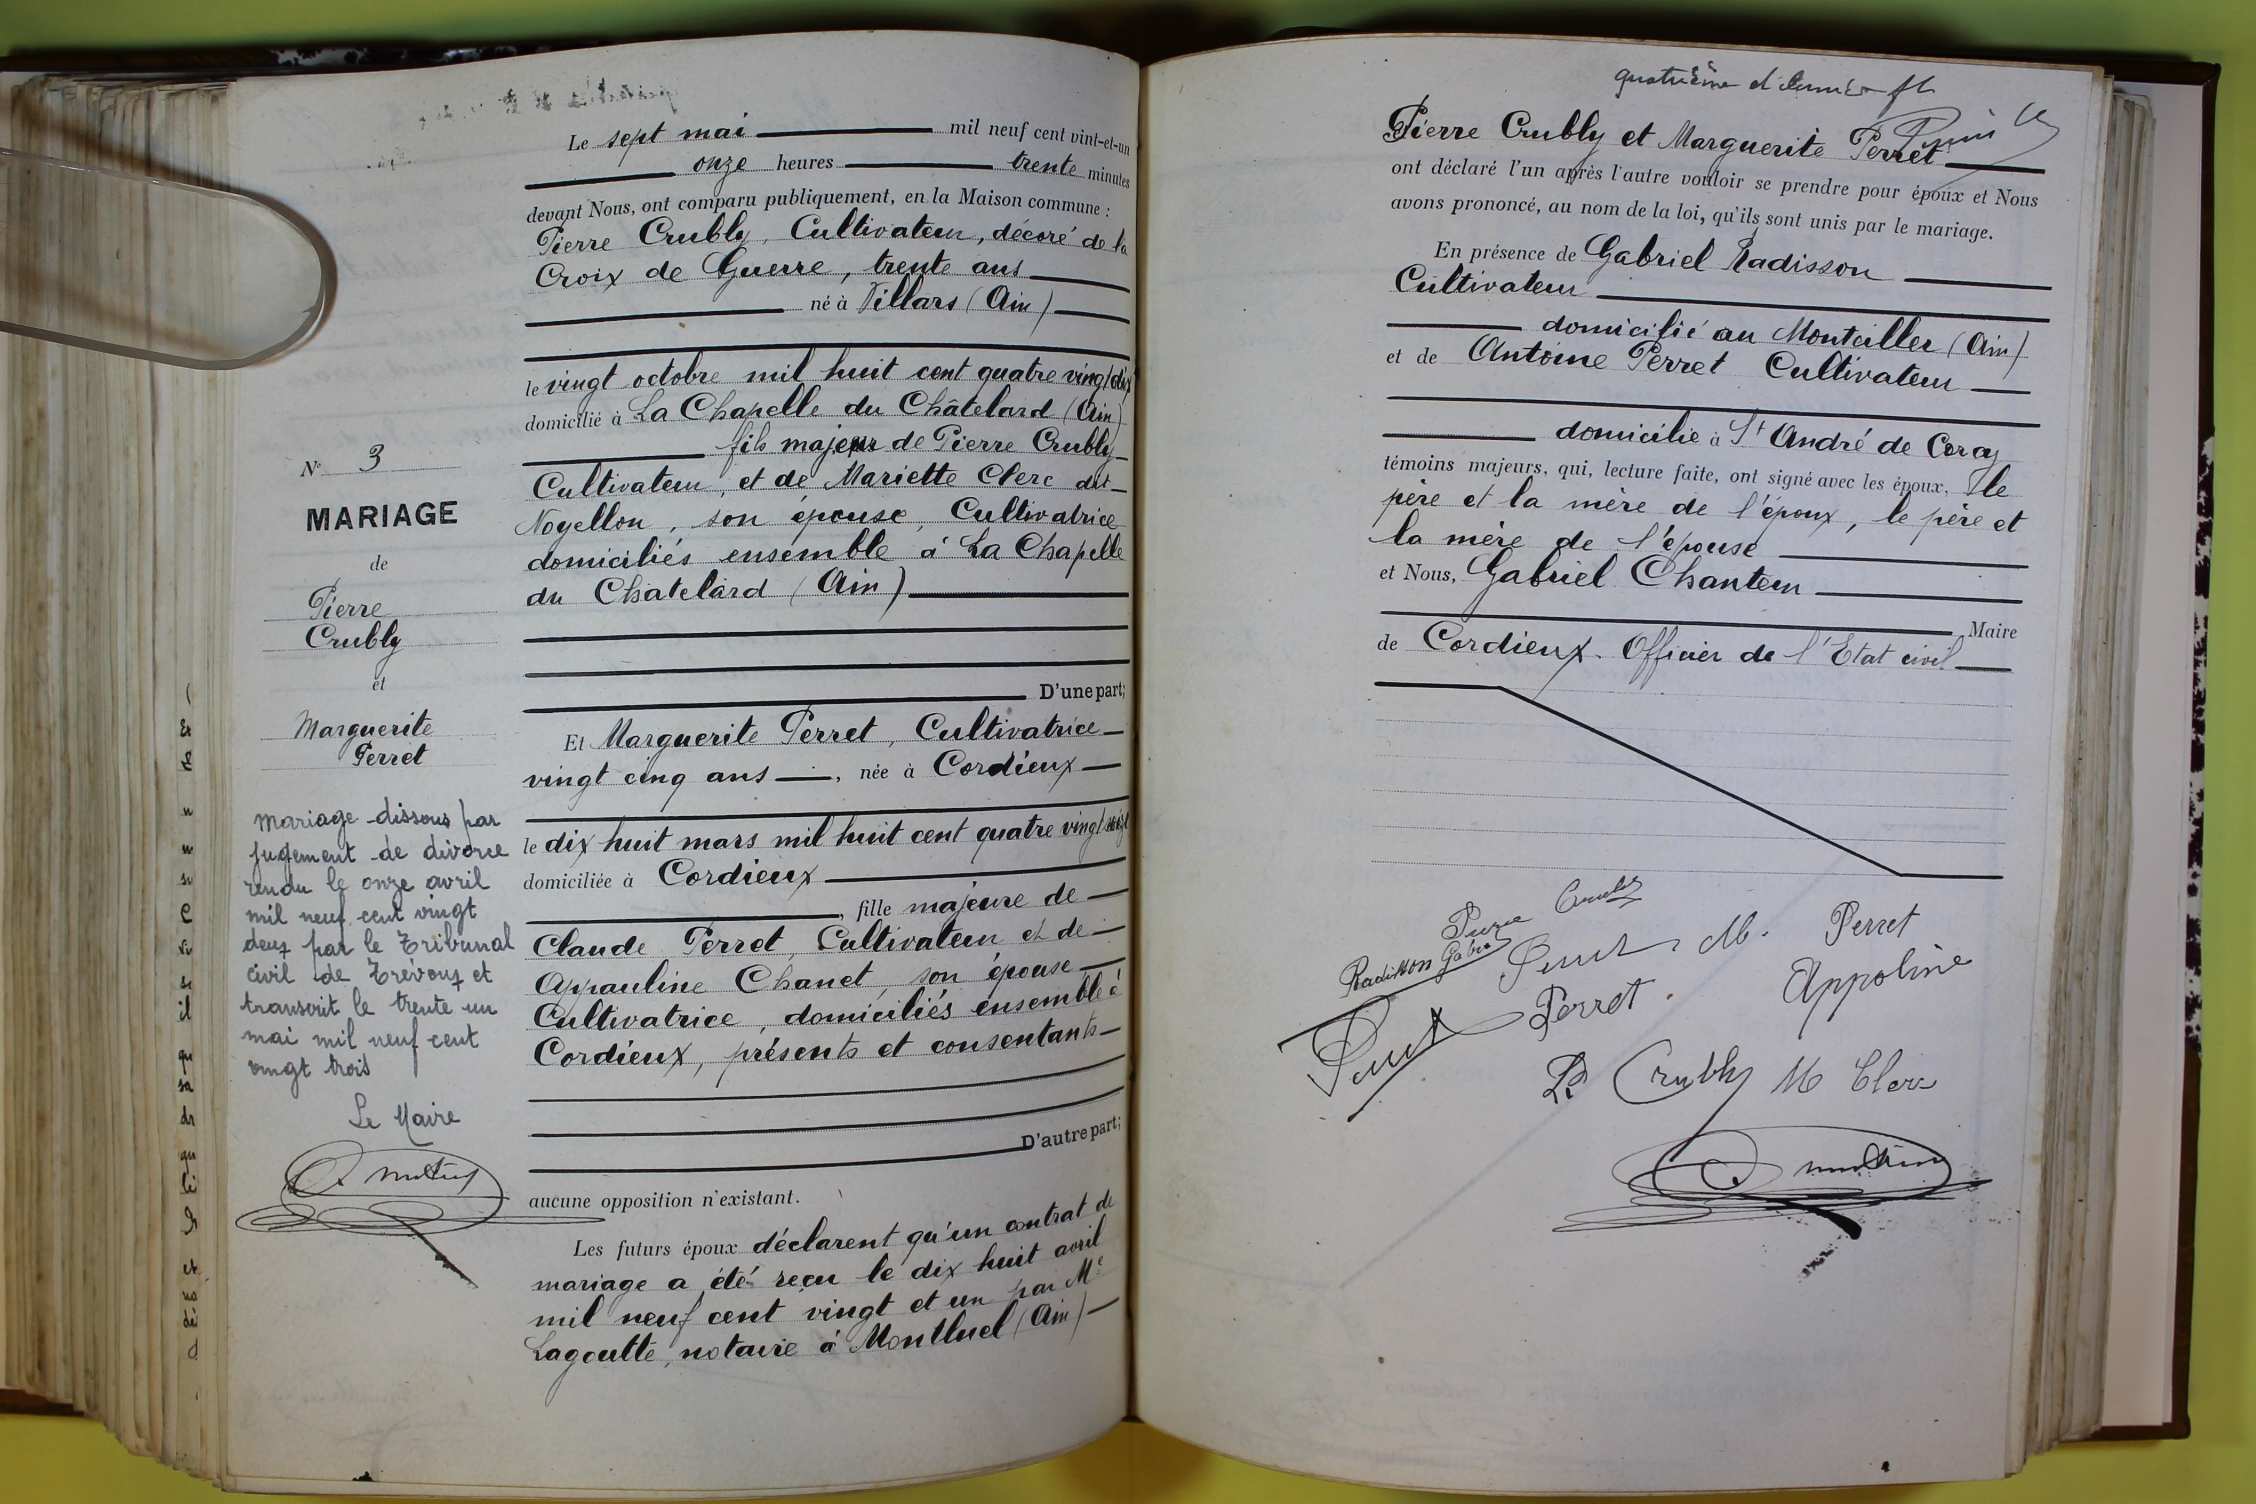 Le sept mai mil neuf cent vint-et-un
onze heures trente minutes
devant Nous, ont comparu publiquement, en la Maison commune :
Pierre Crubly, Cultivateur, décoré de la
Croix de Guerre, trente ans
né à Villars (Ain)
le vingt octobre mil huit cent quatre vingt dix
domicilié à La Chapelle du Châtelard (Ain)
fils majeur de Pierre Crubly
Cultivateur, et de Mariette Clerc dit
Noyellon, son épouse, Cultivatrice
domiciliés ensemble à La Chapelle
du Châtelard (Ain)
D'une part;
Et Marguerite Perret, Cultivatrice
vingt cinq ans, née à Cordieux
le dix huit mars mil huit cent quatre vingt
domiciliée à Cordieux
, fille majeure de
Claude Perret, Cultivateur et de
Appauline Chanet, son épouse
Cultivatrice, domiciliés ensemble à
Cordieux, présents et consentants
D'autre part;
aucune opposition n'existant.
Les futurs époux déclarent qu'un contrat de
mariage a été reçu le dix huit avril
mil neuf cent vingt et un par Me
Lagoutte, notaire à Montluel (Ain)
No 3
MARIAGE
de
Pierre
Crubly
et
Marguerite
Perret
Mariage dissous par
jugement de divorce
rendu le onze avril
mil neuf cent vingt
deux par le Tribunal
civil de Trévoux et
transcrit le trente un
mai mil neuf cent
vingt trois
Le Maire
quatrième et dernier
Pierre Crubly et Marguerite Perret
ont déclaré l'un après l'autre vouloir se prendre pour époux et Nous
avons prononcé, au nom de la loi, qu'ils sont unis par le mariage.
En présence de Gabriel Radisson
Cultivateur
domicilié au Montellier (Ain)
et de Antoine Perret Cultivateur
domicilié à St André de Corcy
témoins majeurs, qui, lecture faite, ont signé avec les époux, le
père et la mère de l'époux, le père et
la mère de l'épouse
et Nous, Gabriel Chanteur
Maire
de Cordieux. Officier de l'Etat civil
Pierre Crubly
Radisson Gabriel
M. Perret
Perret Appoline
Perret
P. Crubly M Clerc